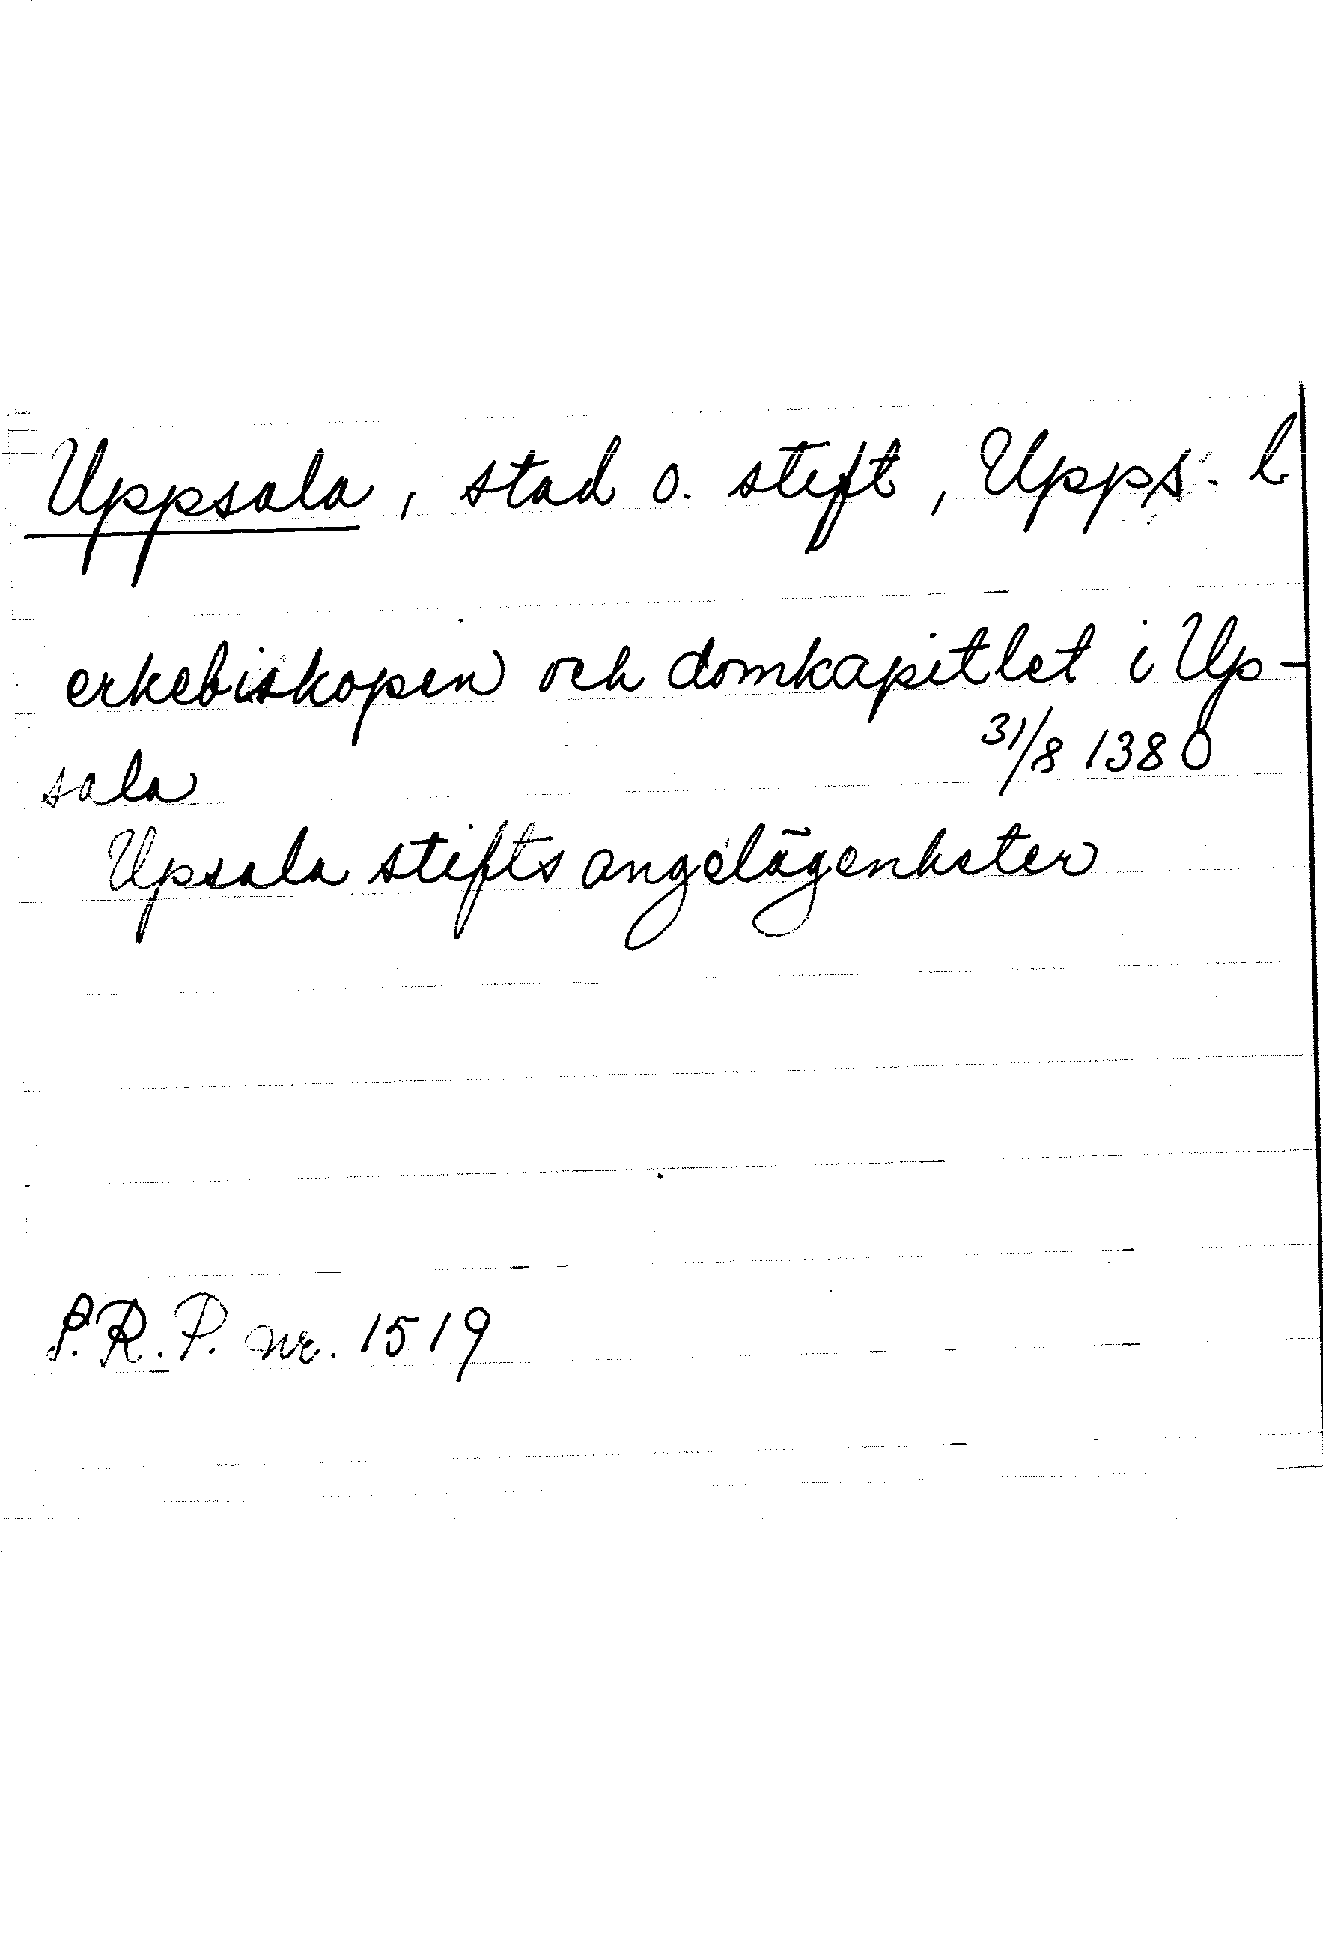 Uppsala, stad o. stift, Upps. l
erkebiskopen och domkapitlet i Up-
sala 31/8 1380
Upsala stifts angelägenheter
S.R.P. nr. 1519